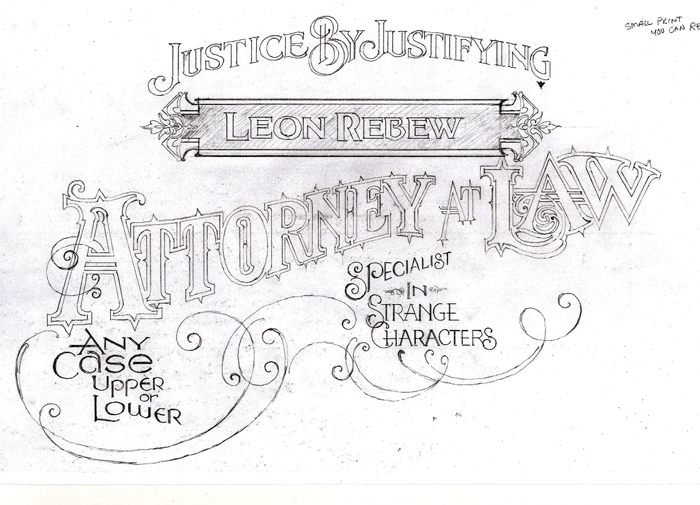 JUSTICE BY JUSTIFYING
SMALL PRINT
YOU CAN
LEON REBEW
ATTORNEY AT LAW
SPECIALIST
IN
STRANGE
CHARACTERS
ANY
Case
UPPER
or
LOWER